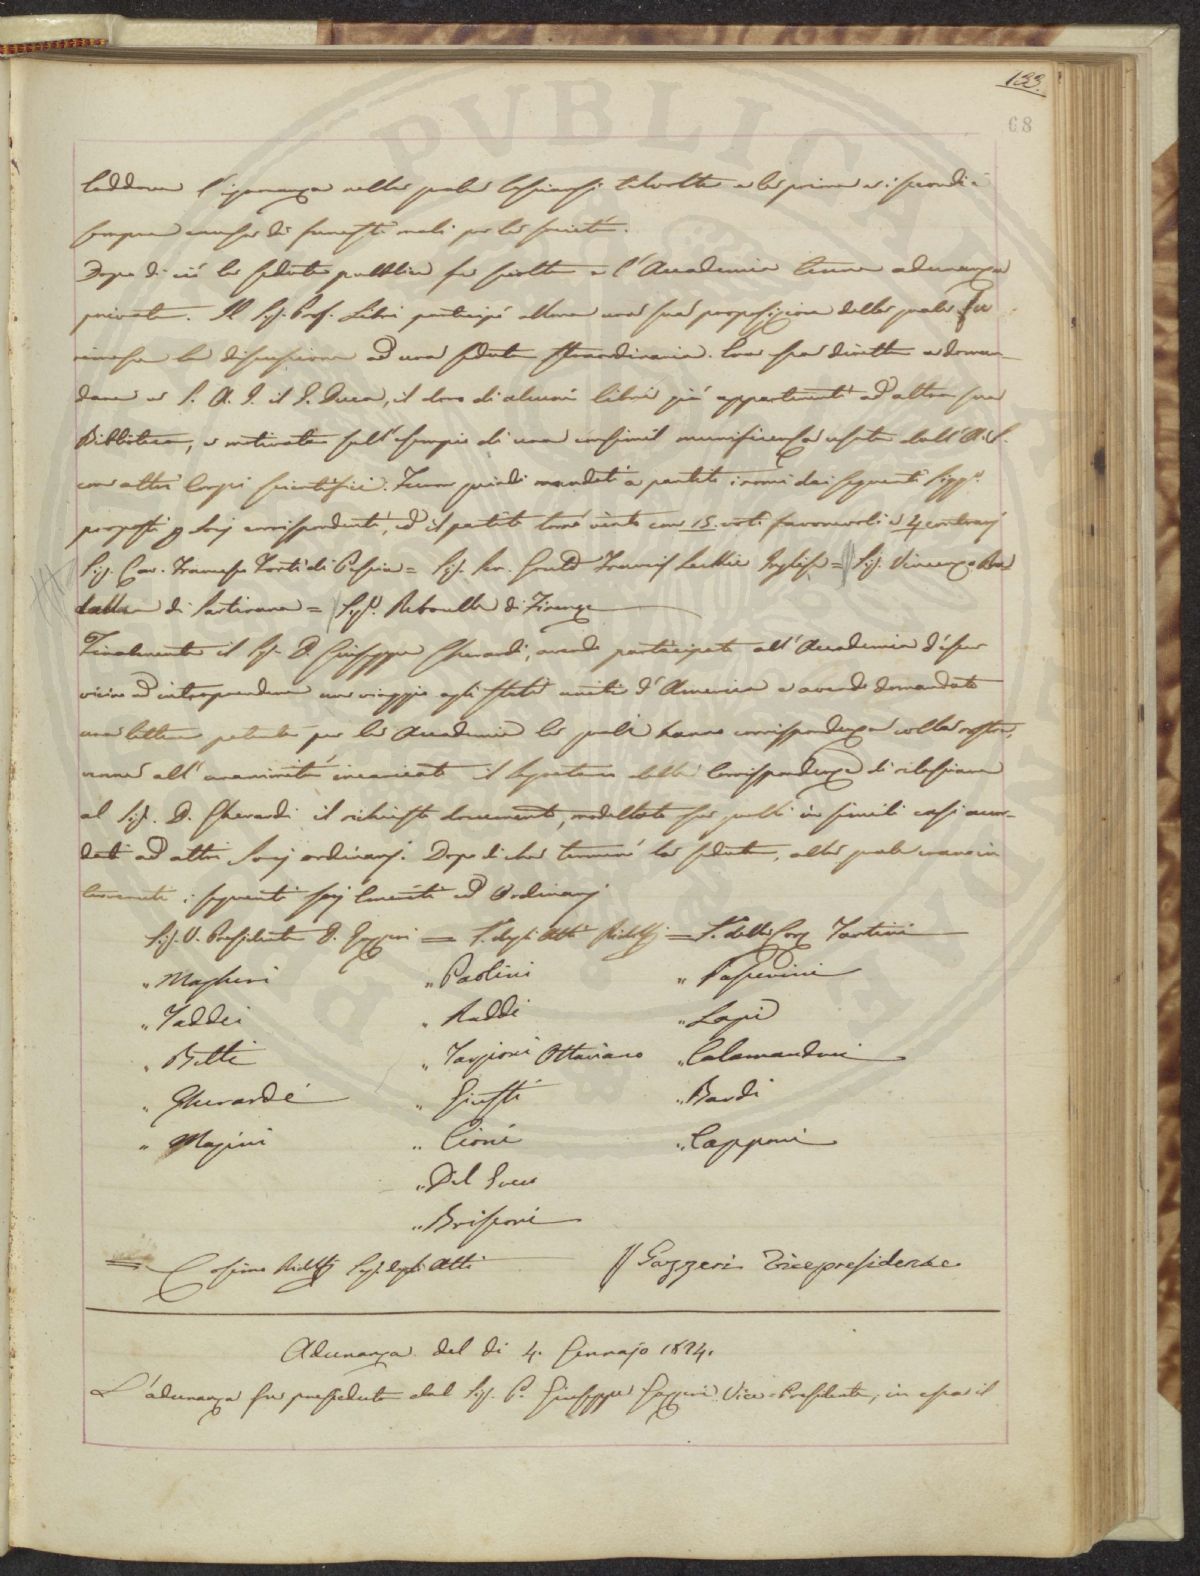 133.
68
laddove l'ignoranza nelle quali lasciansi talvolta e le prime e i secondi è
sempre causa di funesti mali per la società.
Dopo di ciò la seduta pubblica fu sciolta e l'Accademia tenne adunanza
privata. Il Sig. Prof. Libri partecipò allora una sua proposizione della quale fu
rimessa la discussione ad una seduta straordinaria. Era essa diretta a doman-
dare a S. A. I. il G. Duca, il dono di alcuni libri già appartenuti ad altra sua
Biblioteca, e motivata sull'esempio di una consimil munificenza usata dall'A. S.
con altri Corpi scientifici. Furon quindi mandati a partito i nomi dei seguenti Sigg.ri
proposti p Socj corrispondenti, ed il partito tornò vinto con 15. voti favorevoli e 4 contrarj
Sig. Cav. Francesco Forti di Pescia = Sig. Francis Leckie Inglese = Sig. Vincenzo
di Sartirana = Sig. Reboulle di Firenze
Finalmente il Sig. D. Giuseppe Gherardi, avendo partecipato all'Accademia d'esser
vicino ad intraprendere un viaggio agli stati uniti d'America e avendo domandato
una lettera patente per le Accademie le quali hanno corrispondenza colla nostra,
venne all'unanimità incaricato il Segretario della Corrispondenza di rilasciare
al Sig. D. Gherardi il richiesto documento, modellato su quelli in simili casi accor-
dati ad altri Socj ordinarj. Dopo di che terminò la seduta, alla quale erano in
tervenuti i seguenti socj Emeriti ed Ordinarj
Sig. V. Presidente P. Gazzeri = S. degli Atti Ridolfi = S. della Corr. Tartini
" Magheri " Paolini " Passerini
" Taddei " Raddi " Lapi
" Betti " Targioni Ottaviano " Calamandrei
" Gherardi " Giusti " Bardi
" Magini " Cioni " Capponi
" Del Greco
" Brischi
= Cosimo Ridolfi Seg. degli Atti G Gazzeri Vicepresidente
Adunanza del dì 4. Gennajo 1824.
L'adunanza fu presieduta dal Sig. P. Giuseppe Gazzeri Vice-Presidente, in essa il